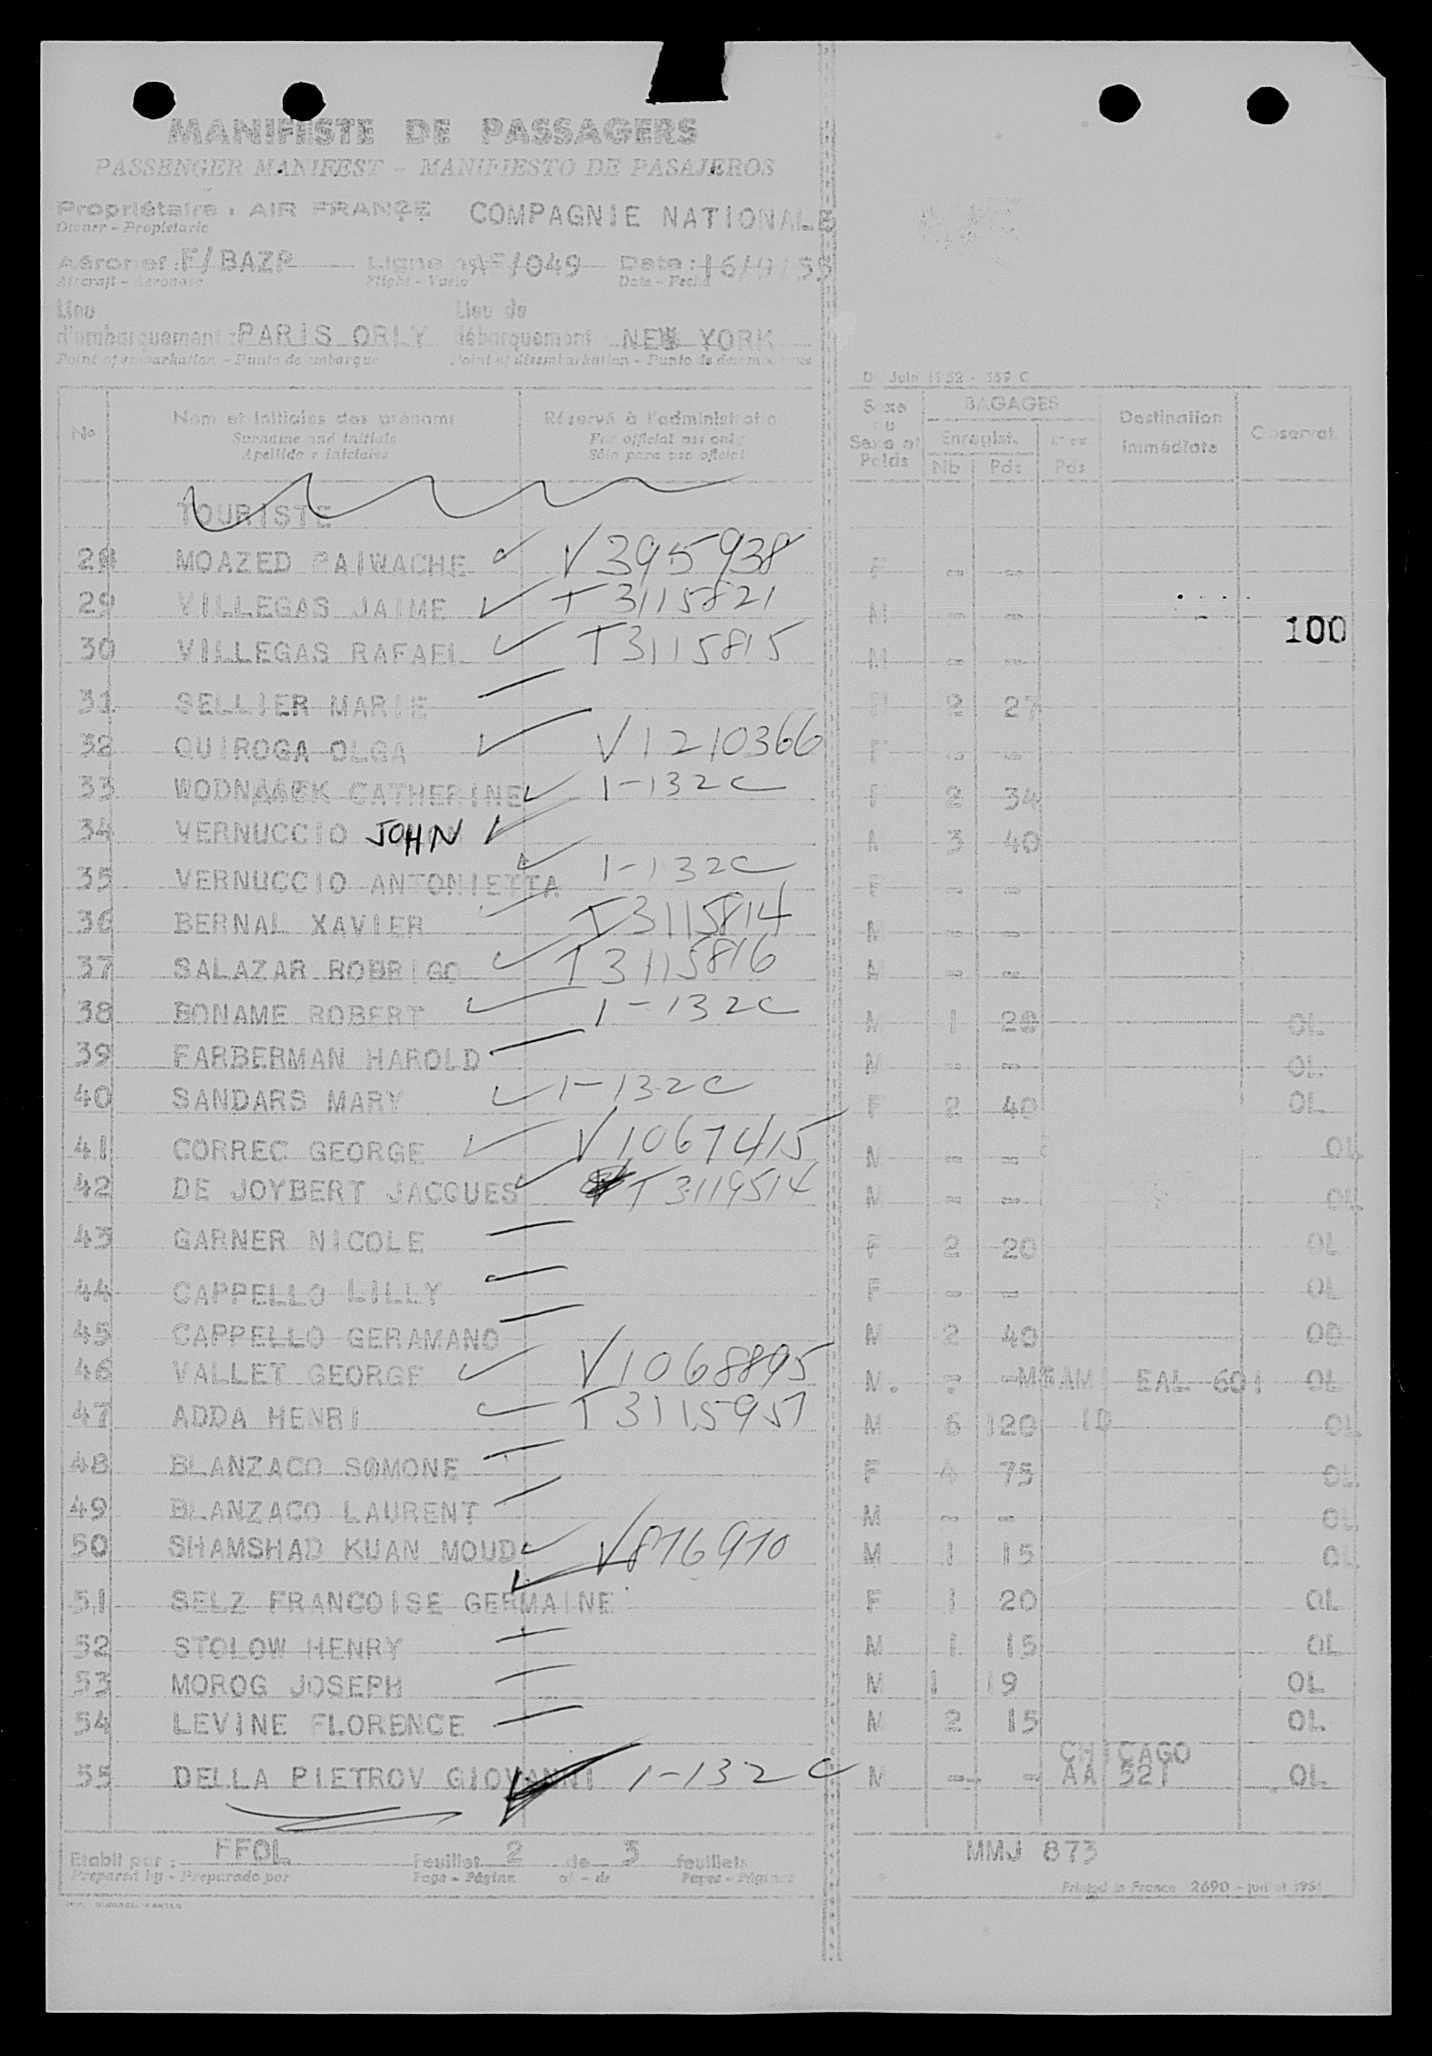 MANIFESTE DE PASSAGERS
PASSENGER MANIFEST - MANIFIESTO DE PASAJEROS
Propriétaire : AIR FRANCE COMPAGNIE NATIONALE
Owner - Propietario
Aéronef : F/BAZP Ligne n° AF/049 Date : 16/9/55
Aircraft - Aeronave Flight - Vuelo Date - Fecha
Lieu Lieu de
d'embarquement : PARIS ORLY débarquement NEW YORK
Point of embarkation - Punto de embarque Point of disembarkation - Punto de
De Juin 1952 - 569 C
No Nom et initiales des prénoms Réservé à l'administration Sexe ou Sexe et Poids BAGAGES Destination immédiate Observat.
Surname and initials For official use only Enregist.
Apellido e iniciales Sólo para uso oficial Nb Pds Pds
TOURISTE
28 MOAZED PAIWACHE V 395938 F - -
29 VILLEGAS JAIME T 3115821 M - -
100
30 VILLEGAS RAFAEL T3115815 M - -
31 SELLIER MARIE 2 27
32 QUIROGA OLGA V1210366 F - -
33 WODNAACK CATHERINE 1-132C F 2 34
34 VERNUCCIO JOHN 3 40
35 VERNUCCIO ANTONIETTA 1-132C F - -
36 BERNAL XAVIER T3115814 M - -
37 SALAZAR RODRIGO T3115816 M - -
38 BONAME ROBERT 1-132C M 1 28 OL
39 FARBERMAN HAROLD M - - OL
40 SANDARS MARY 1-132C F 2 40 OL
41 CORREC GEORGE V1067415 M - - OL
42 DE JOYBERT JACQUES T3119514 M - - OL
43 GARNER NICOLE F 2 20 OL
44 CAPPELLO LILLY F - - OL
45 CAPPELLO GERAMANO M 2 40 OO
46 VALLET GEORGE V1068895 M. - - MIAMI EAL 601 OL
47 ADDA HENRI T3115957 M 6 120 10 OL
48 BLANZACO SOMONE F 4 75 OL
49 BLANZACO LAURENT M - - OL
50 SHAMSHAD KUAN MOUD V876970 M 1 15 OL
51 SELZ FRANCOISE GERMAINE F 1 20 OL
52 STOLOW HENRY M 1 15 OL
53 MOROG JOSEPH M 1 19 OL
54 LEVINE FLORENCE M 2 15 OL
CHICAGO
55 DELLA PIETROV GIOVANNI 1-132C M - - AA 521 OL
Etabli par : FFOL Feuillet 2 de 3 feuillets MMJ 873
Prepared by - Preparado por Page - Página of - de Pages - Páginas
Printed in France 2690 - juillet 1951